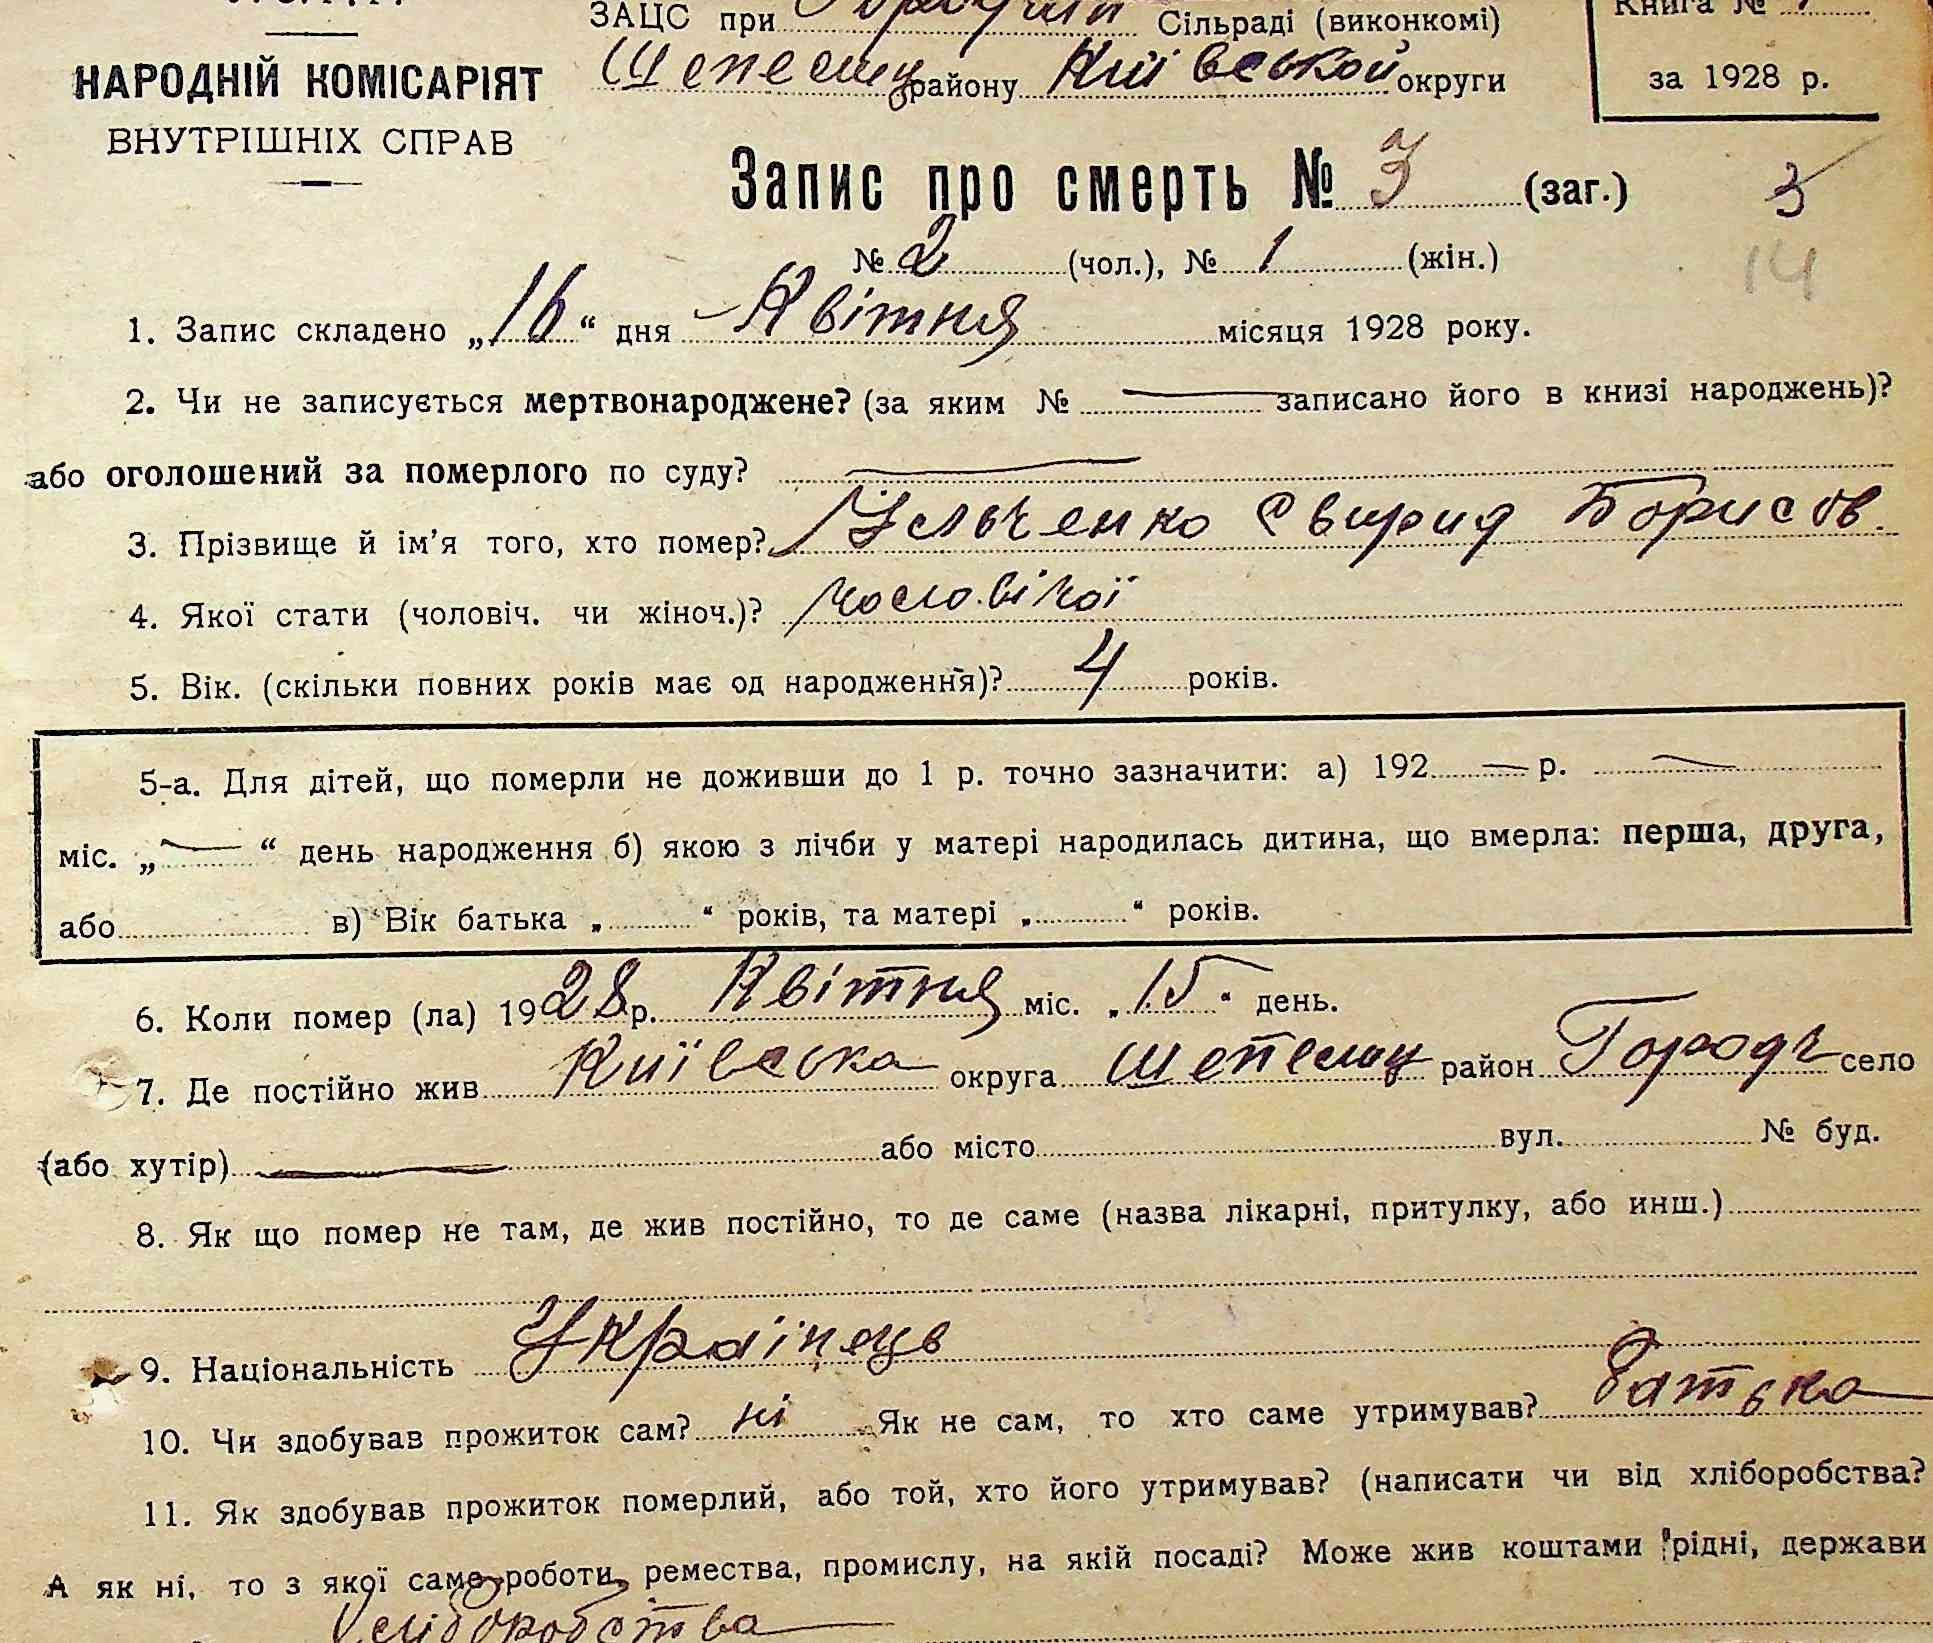 ЗАЦС при Сільраді (виконкомі)
Книга №
НАРОДНІЙ КОМІСАРІЯТ
ВНУТРІШНІХ СПРАВ
району Київської округи
за 1928 р.
Запис про смерть № 3 (заг.) 3
№ 2 (чол.), № 1 (жін.) 14
1. Запис складено „16“ дня Квітня місяця 1928 року.
2. Чи не записується мертвонароджене? (за яким № записано його в книзі народжень)?
або оголошений за померлого по суду?
3. Прізвище й ім’я того, хто помер? Ильченко Свирид Борисов.
4. Якої стати (чоловіч. чи жіноч.)? чоловічої
5. Вік. (скільки повних років має од народження)? 4 років.
5-а. Для дітей, що померли не доживши до 1 р. точно зазначити: а) 192 р.
міс. „ “ день народження б) якою з лічби у матері народилась дитина, що вмерла: перша, друга,
або в) Вік батька „ “ років, та матері „ “ років.
6. Коли помер (ла) 1928 р. Квітня міс. „15“ день.
7. Де постійно жив Київська округа район село
(або хутір) або місто вул. № буд.
8. Як що помер не там, де жив постійно, то де саме (назва лікарні, притулку, або инш.)
9. Національність Українець
10. Чи здобував прожиток сам? ні Як не сам, то хто саме утримував? батька
11. Як здобував прожиток померлий, або той, хто його утримував? (написати чи від хліборобства?
А як ні, то з якої саме роботи, ремества, промислу, на якій посаді? Може жив коштами рідні, держави
Хліборобства